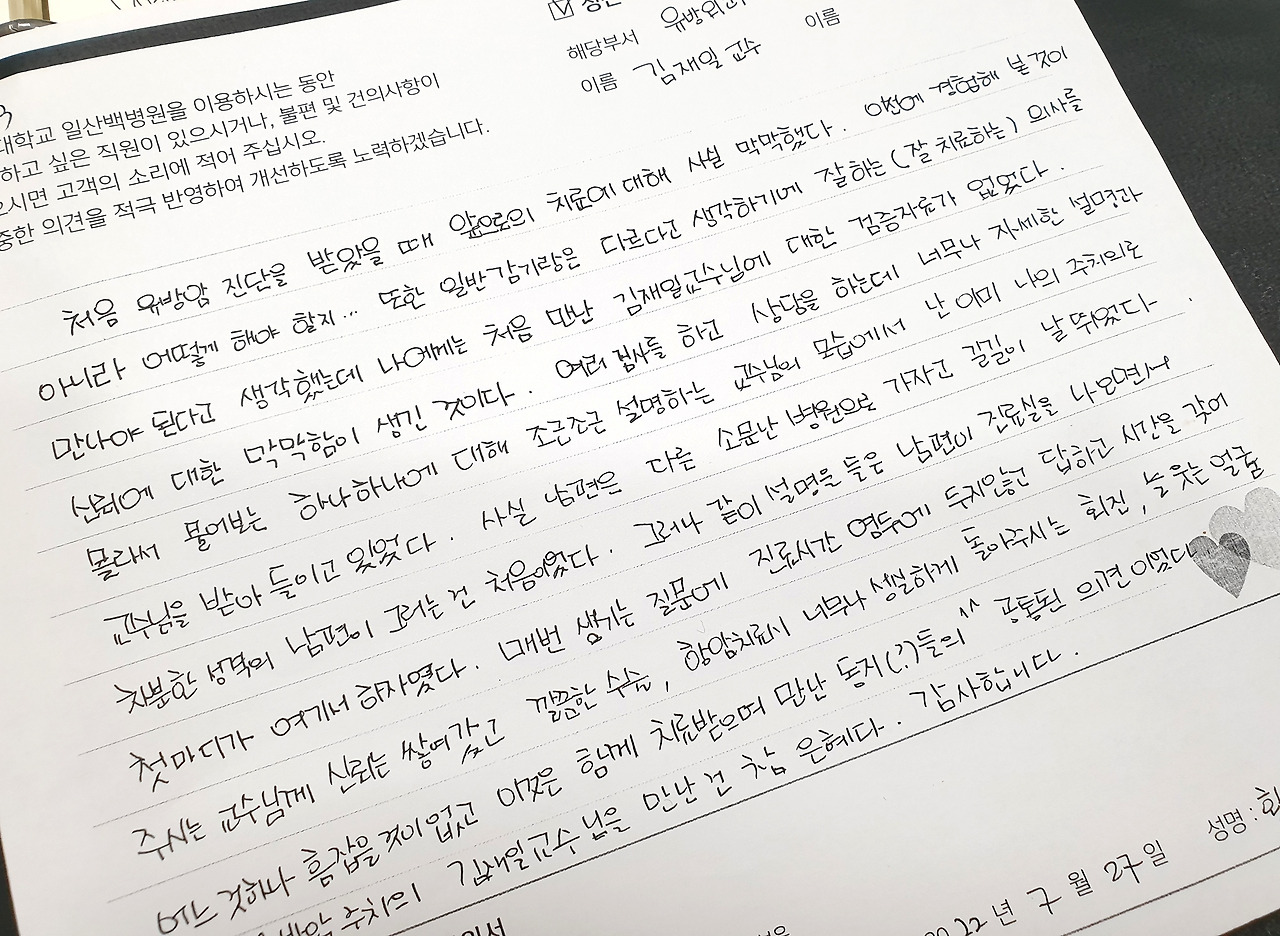 해당부서 유방외과
이름 김재일 교수 이름
대학교 일산백병원을 이용하시는 동안
하고 싶은 직원이 있으시거나, 불편 및 건의사항이
으시면 고객의 소리에 적어 주십시오.
중한 의견을 적극 반영하여 개선하도록 노력하겠습니다.
처음 유방암 진단을 받았을 때 앞으로의 치료에 대해 사실 막막했다. 이전에 경험해 본 것이
아니라 어떻게 해야 할지... 또한 일반감기랑은 다르다고 생각하기에 잘하는 (잘 치료하는) 의사를
만나야 된다고 생각했는데 나에게는 처음 만난 김재일교수님에 대한 검증자료가 없었다.
신뢰에 대한 막막함이 생긴 것이다. 여러 검사를 하고 상담을 하는데 너무나 자세한 설명과
몰라서 물어보는 하나하나에 대해 조근조근 설명하는 교수님의 모습에서 난 이미 나의 주치의로
교수님을 받아 들이고 있었다. 사실 남편은 다른 소문난 병원으로 가자고 길길이 날 뛰었다.
차분한 성격의 남편이 그러는 건 처음이었다. 그러나 같이 설명을 들은 남편이 진료실을 나오면서
첫마디가 여기서 하자였다. 매번 생기는 질문에 진료시간 염두에 두지않고 답하고 시간을 갖어
주시는 교수님께 신뢰는 쌓여갔고 깔끔한 수술, 항암치료시 너무나 성실하게 돌아주시는 회진, 늘 웃는 얼굴
어느 것하나 흠잡을 것이 없고 이것은 함께 치료받으며 만난 동지(?)들의 ^^ 공통된 의견이었다
주치의 김재일교수님을 만난 건 참 은혜다. 감사합니다.
22년 7월 27일 성명: